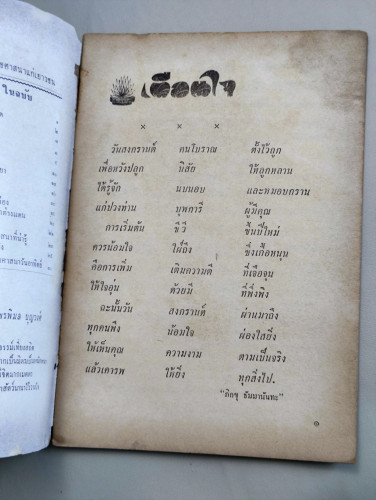 ศาสนาแก่เยาวชน
ในฉบับ
เตือนใจ
× × ×
วันสงกรานต์ คนโบราณ ตั้งไว้ถูก
เพื่อหวังปลูก นิสัย ให้ลูกหลาน
ได้รู้จัก นบนอบ และหมอบกราน
แก่ปวงท่าน บุพการี ผู้มีคุณ
การเริ่มต้น ชีวี ขึ้นปีใหม่
ควรน้อมใจ ใฝ่ถึง ซึ่งเกื้อหนุน
คือการเพิ่ม เติมความดี ที่เจือจุน
ให้ใจอุ่น ด้วยมี ที่พึ่งพิง
ฉะนั้นวัน สงกรานต์ ผ่านมาถึง
ทุกคนพึง น้อมใจ ผ่องใสยิ่ง
ให้เห็นคุณ ความงาม ตามเป็นจริง
แล้วเคารพ ให้ยิ่ง ทุกสิ่งไป.
"ภิกขุ ธัมมานันทะ"
๑